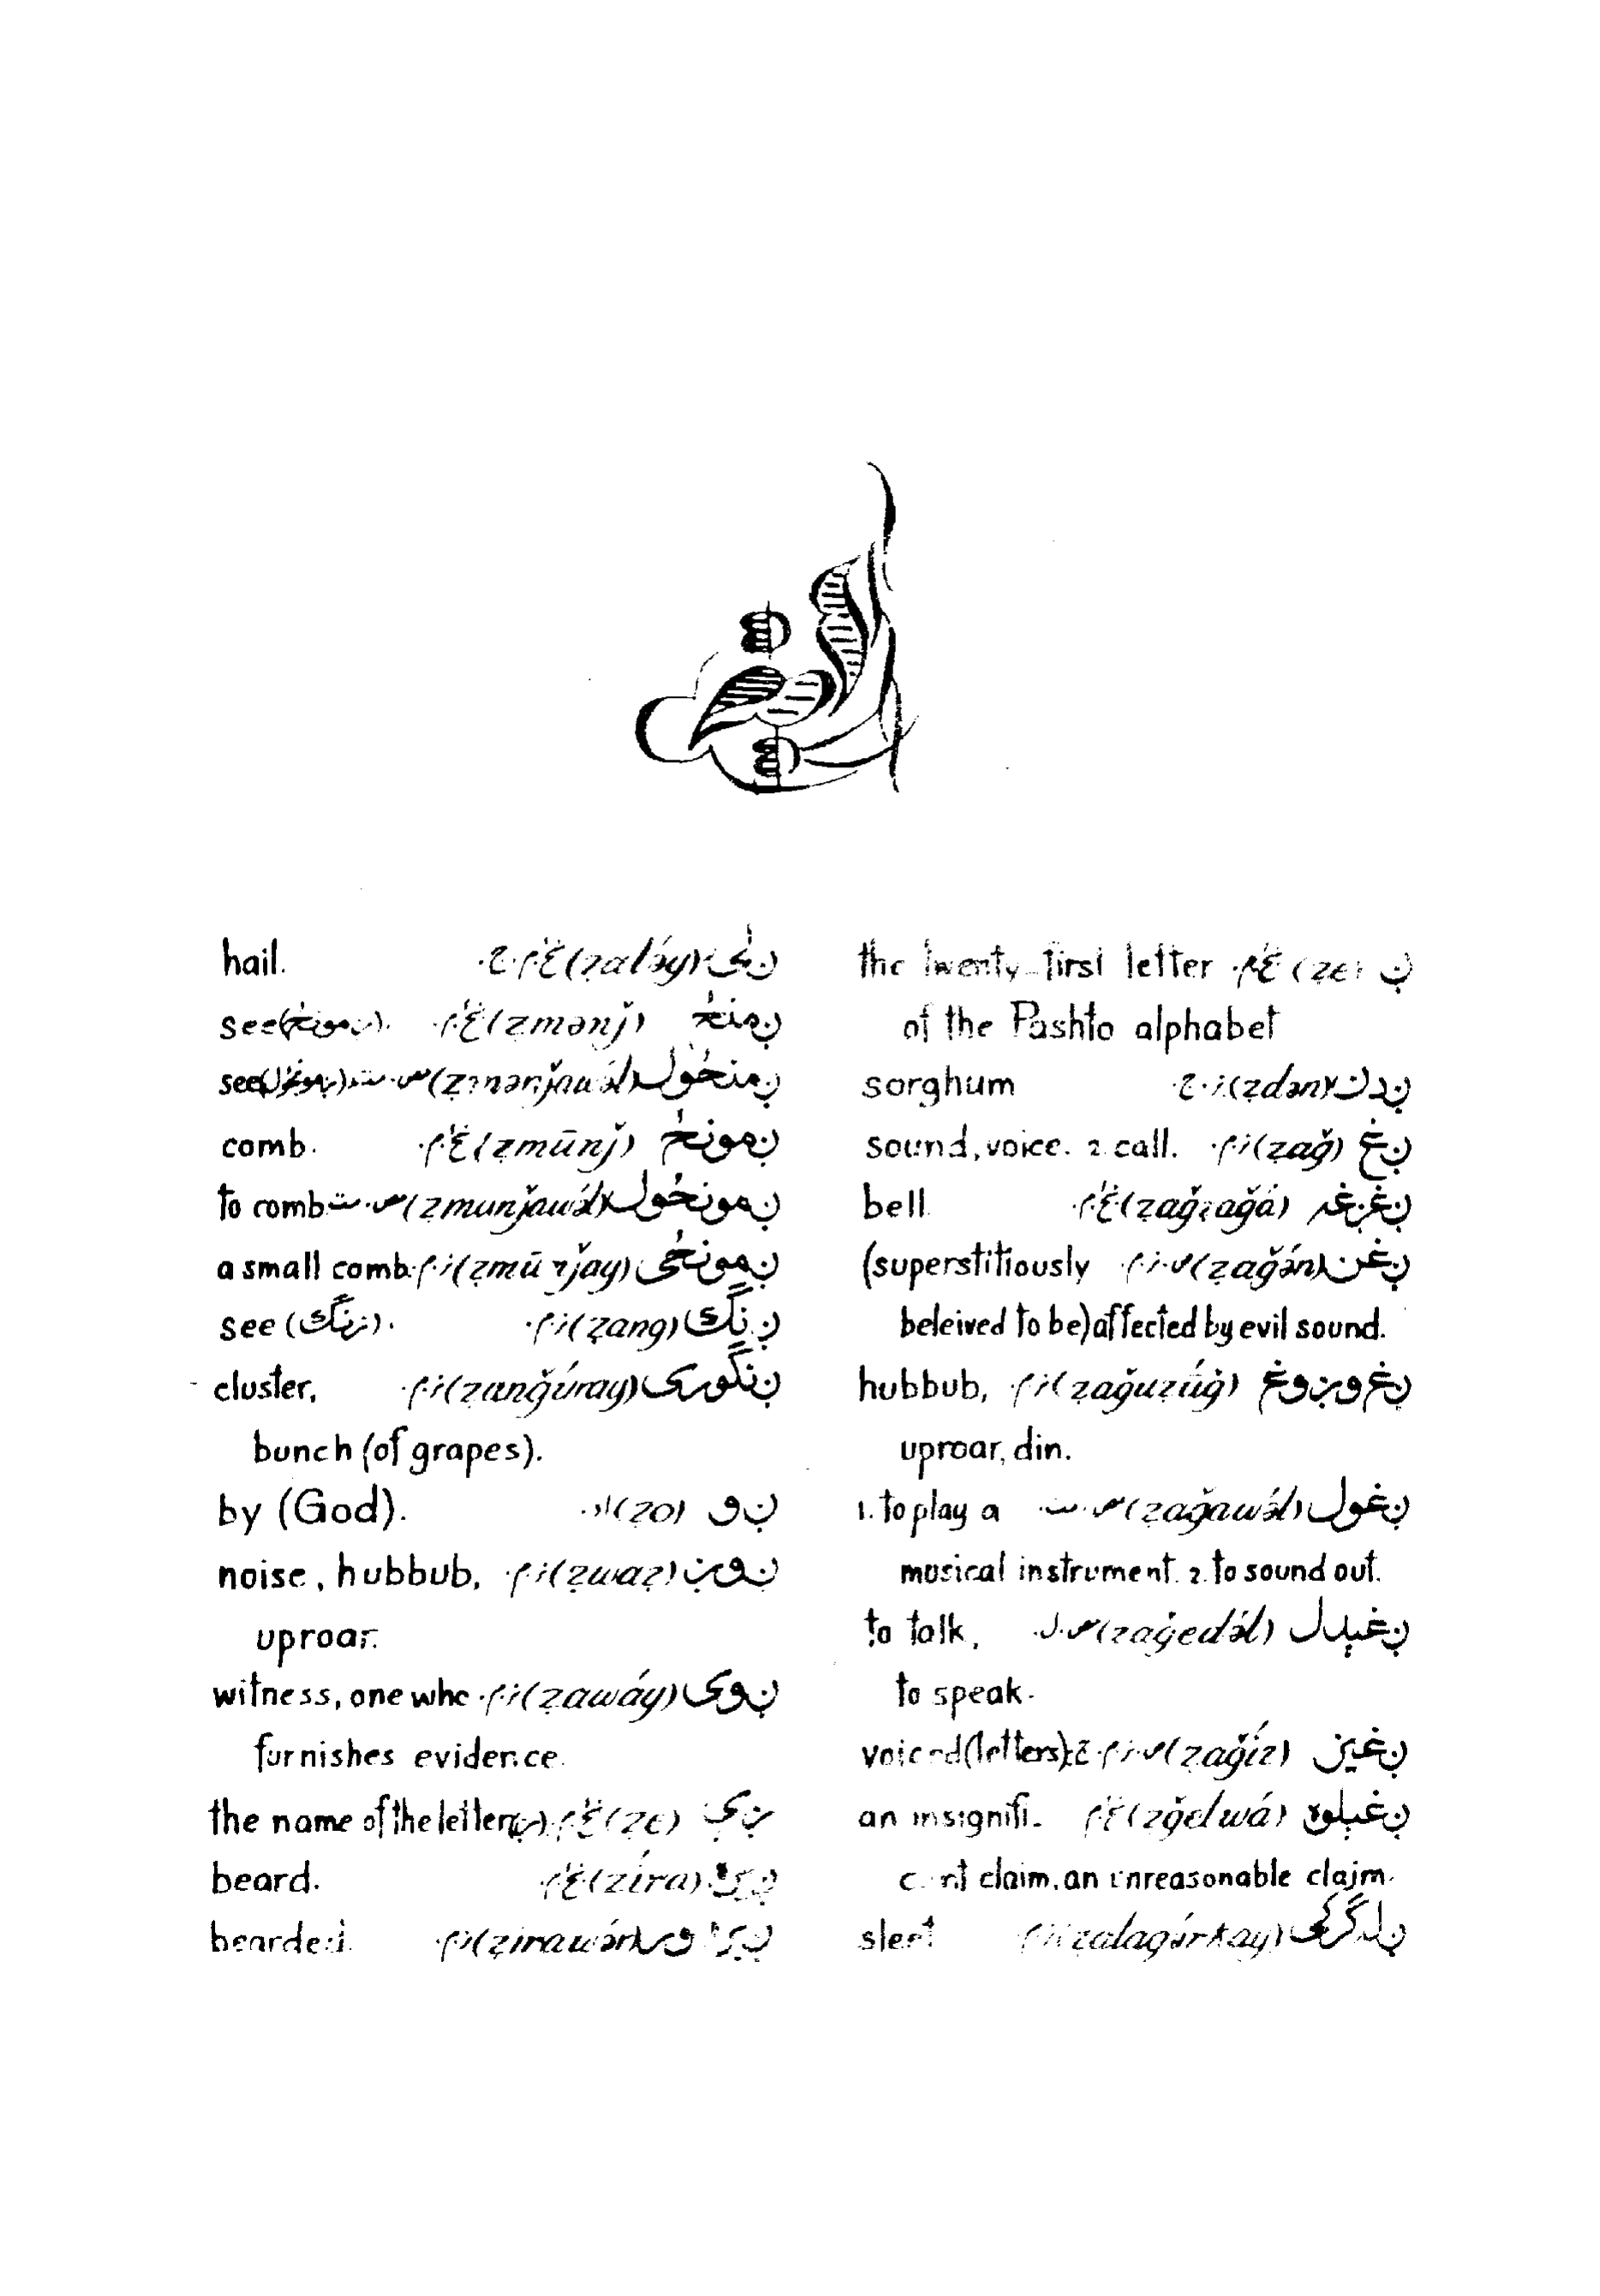 ږ (ẓe) the twenty-first letter
of the Pashto alphabet
ږدن (ẓdən) sorghum
ږغ (ẓağ) sound, voice. 2. call.
ږغږغه (ẓağẓağá) bell
ږغن (ẓağə́n) (superstitiously
beleived to be) affected by evil sound.
ږغوږوغ (ẓağuẓúğ) hubbub,
uproar, din.
ږغول (ẓağawə́l) 1. to play a
musical instrument. 2. to sound out.
ږغېدل (ẓağedə́l) to talk,
to speak.
ږغيز (ẓağíz) voiced (letters)
ږغېلوه (ẓğelwá) an insignifi-
cant claim, an unreasonable claim.
ږلګرکی (ẓalagə́rkay) sleet
ږلۍ (ẓalə́y) hail.
ږمنځ (ẓmənǰ) see (ږمونځ).
ږمنځول (ẓmənǰawə́l) see (ږمونځول)
ږمونځ (ẓmūnǰ) comb.
ږمونځول (ẓmunǰawə́l) to comb
ږمونځی (ẓmūnǰay) a small comb.
ږنګ (ẓang) see (زنګ).
ږنګوری (ẓanğúray) cluster,
bunch (of grapes).
ږو (ẓo) by (God).
ږوږ (ẓwaẓ) noise, hubbub,
uproar.
ږوی (ẓawáy) witness, one who
furnishes evidence.
ږې (ẓe) the name of the letter (ږ)
ږيره (ẓíra) beard.
ږيرهور (ẓirawár) bearded.